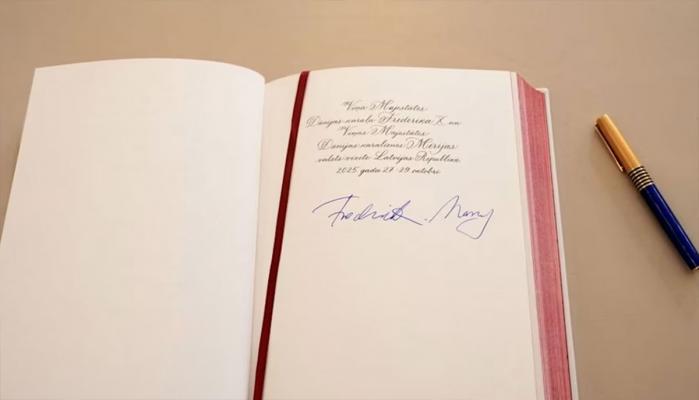 Viņa Majestātes
Dānijas karaļa Frederika X un
Viņas Majestātes
Dānijas karalienes Mērijas
valsts vizīte Latvijas Republikā
2025. gada 27.-29. oktobrī
Frederik Mary